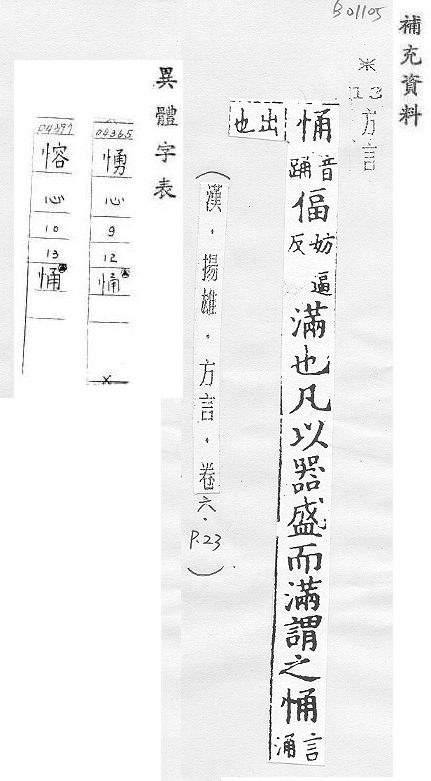 B01105
補充資料
※
13方言
悀音踊偪妨逼反滿也凡以器盛而滿謂之悀言涌
出也
(漢．揚雄．方言．卷六．P.23)
異體字表
04365
心
9
12
悀
×
04397
心
10
13
悀